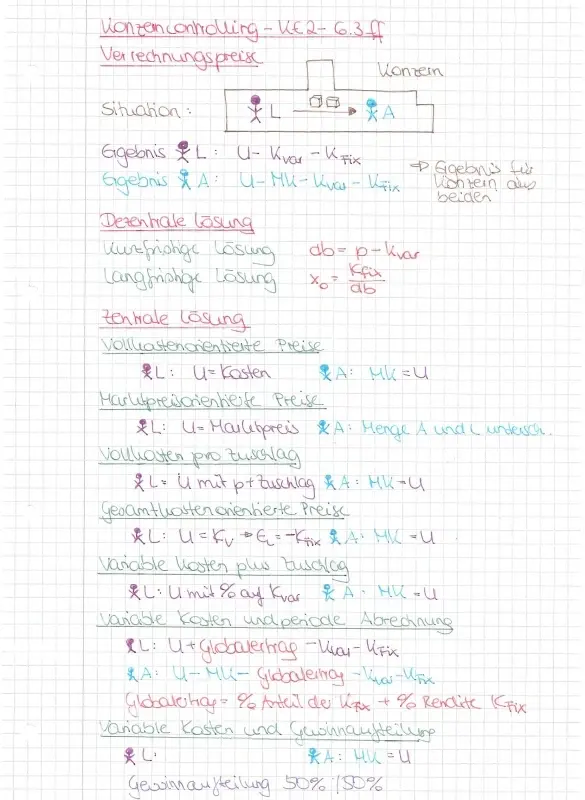 Konzerncontrolling - KE2 - 6.3 ff
Verrechnungspreise
Konzern
Situation: L A
Ergebnis L: U - Kvar - KFix
Ergebnis A: U - MK - Kvar - KFix
⇒ Ergebnis für Konzern aus beiden
Dezentrale Lösung
Kurzfristige Lösung db = p - Kvar
Langfristige Lösung x₀ = Kfix / db
Zentrale Lösung
Vollkostenorientierte Preise
L: U = Kosten A: MK = U
Marktpreisorientierte Preise
L: U = Marktpreis A: Menge A und L untersch.
Vollkosten pro Zuschlag
L = U mit p + Zuschlag A: MK = U
Gesamtkostenorientierte Preise
L: U = Kv → EL = -KFix A: MK = U
Variable Kosten plus Zuschlag
L: U mit % auf Kvar A: MK = U
Variable Kosten und periode Abrechnung
L: U + Globalertrag - Kvar - KFix
A: U - MK - Globalertrag - Kvar - KFix
Globalertrag = % Anteil der KFix + % Rendite KFix
Variable Kosten und Gewinnaufteilung
L: A: MK = U
Gewinnaufteilung 50% / 50%